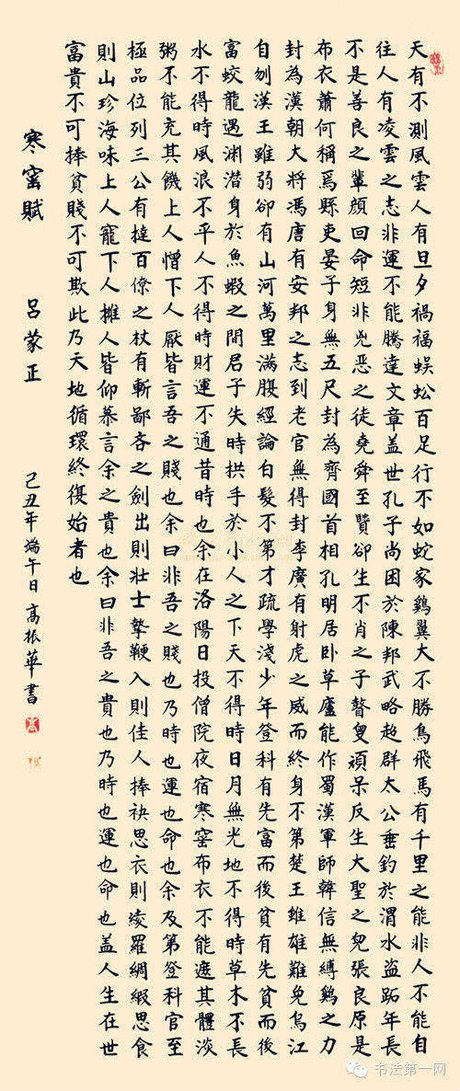 天有不測風雲人有旦夕禍福蜈蚣百足行不如蛇家鷄翼大不勝鳥飛馬有千里之能非人不能自
往人有凌雲之志非運不能騰達文章盖世孔子尚困於陳邦武略超群太公垂釣於渭水盗跖年長
不是善良之輩顔回命短非兇惡之徒堯舜至賢卻生不肖之子瞽叟頑呆反生大聖之兒張良原是
布衣蕭何稱焉縣吏晏子身無五尺封為齊國首相孔明居卧草廬能作蜀漢軍師韓信無縛鷄之力
封為漢朝大將馮唐有安邦之志到老官無得封李廣有射虎之威而終身不第楚王雖雄難免烏江
自刎漢王雖弱卻有山河萬里滿腹經論白髮不第才疏學淺少年登科有先富而後貧有先貧而後
富蛟龍遇渊潜身於魚蝦之間君子失時拱手於小人之下天不得時日月無光地不得時草木不長
水不得時風浪不平人不得時財運不通昔時也余在洛陽日投僧院夜宿寒窑布衣不能遮其體淡
粥不能充其饑上人憎下人厭皆言吾之賤也余曰非吾之賤也乃時也運也命也余及第登科官至
極品位列三公有撻百僚之杖有斬鄙吝之劍出則壯士擎鞭入則佳人捧袂思衣則綾羅綢緞思食
則山珍海味上人寵下人擁人皆仰慕言余之貴也余曰非吾之貴也乃時也運也命也盖人生在世
富貴不可捧貧賤不可欺此乃天地循環終復始者也
寒窑賦 呂蒙正 己丑年端午日高振華書
书法第一网